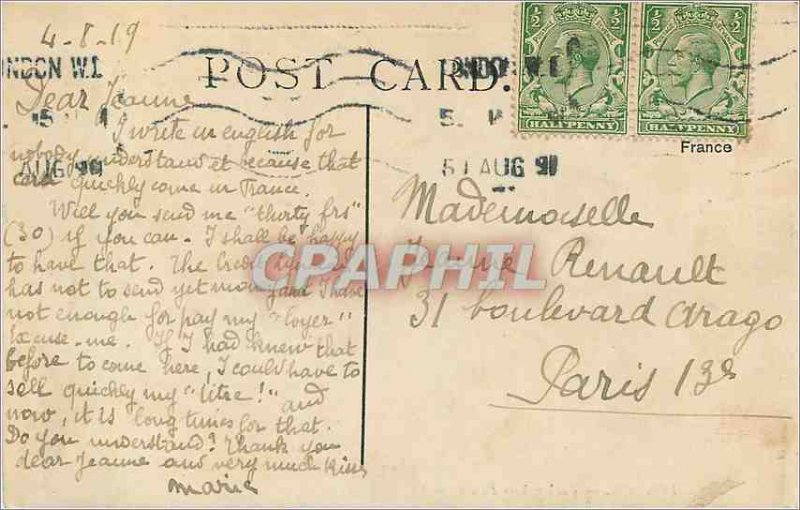 4-8-19
LONDON W.1
POST CARD.
HALFPENNY
HALFPENNY
France
5 AUG 19
Dear Jeanne
I write in english for
nobody understand et because that
card quickly come in France.
Will you send me "thirty frs"
(30) if you can. I shall be happy
to have that. The Credit
has not to send yet money and I have
not enough for pay my "loyer"
Excuse-me. If I had knew that
before to come here, I could have to
sell quickly my "titre!" and
now, it is long times for that.
Do you understand? Thank you
dear Jeanne and very much kiss
Marie
Mademoiselle
Jeanne Renault
31 boulevard Arago
Paris 13e
CPAPHIL